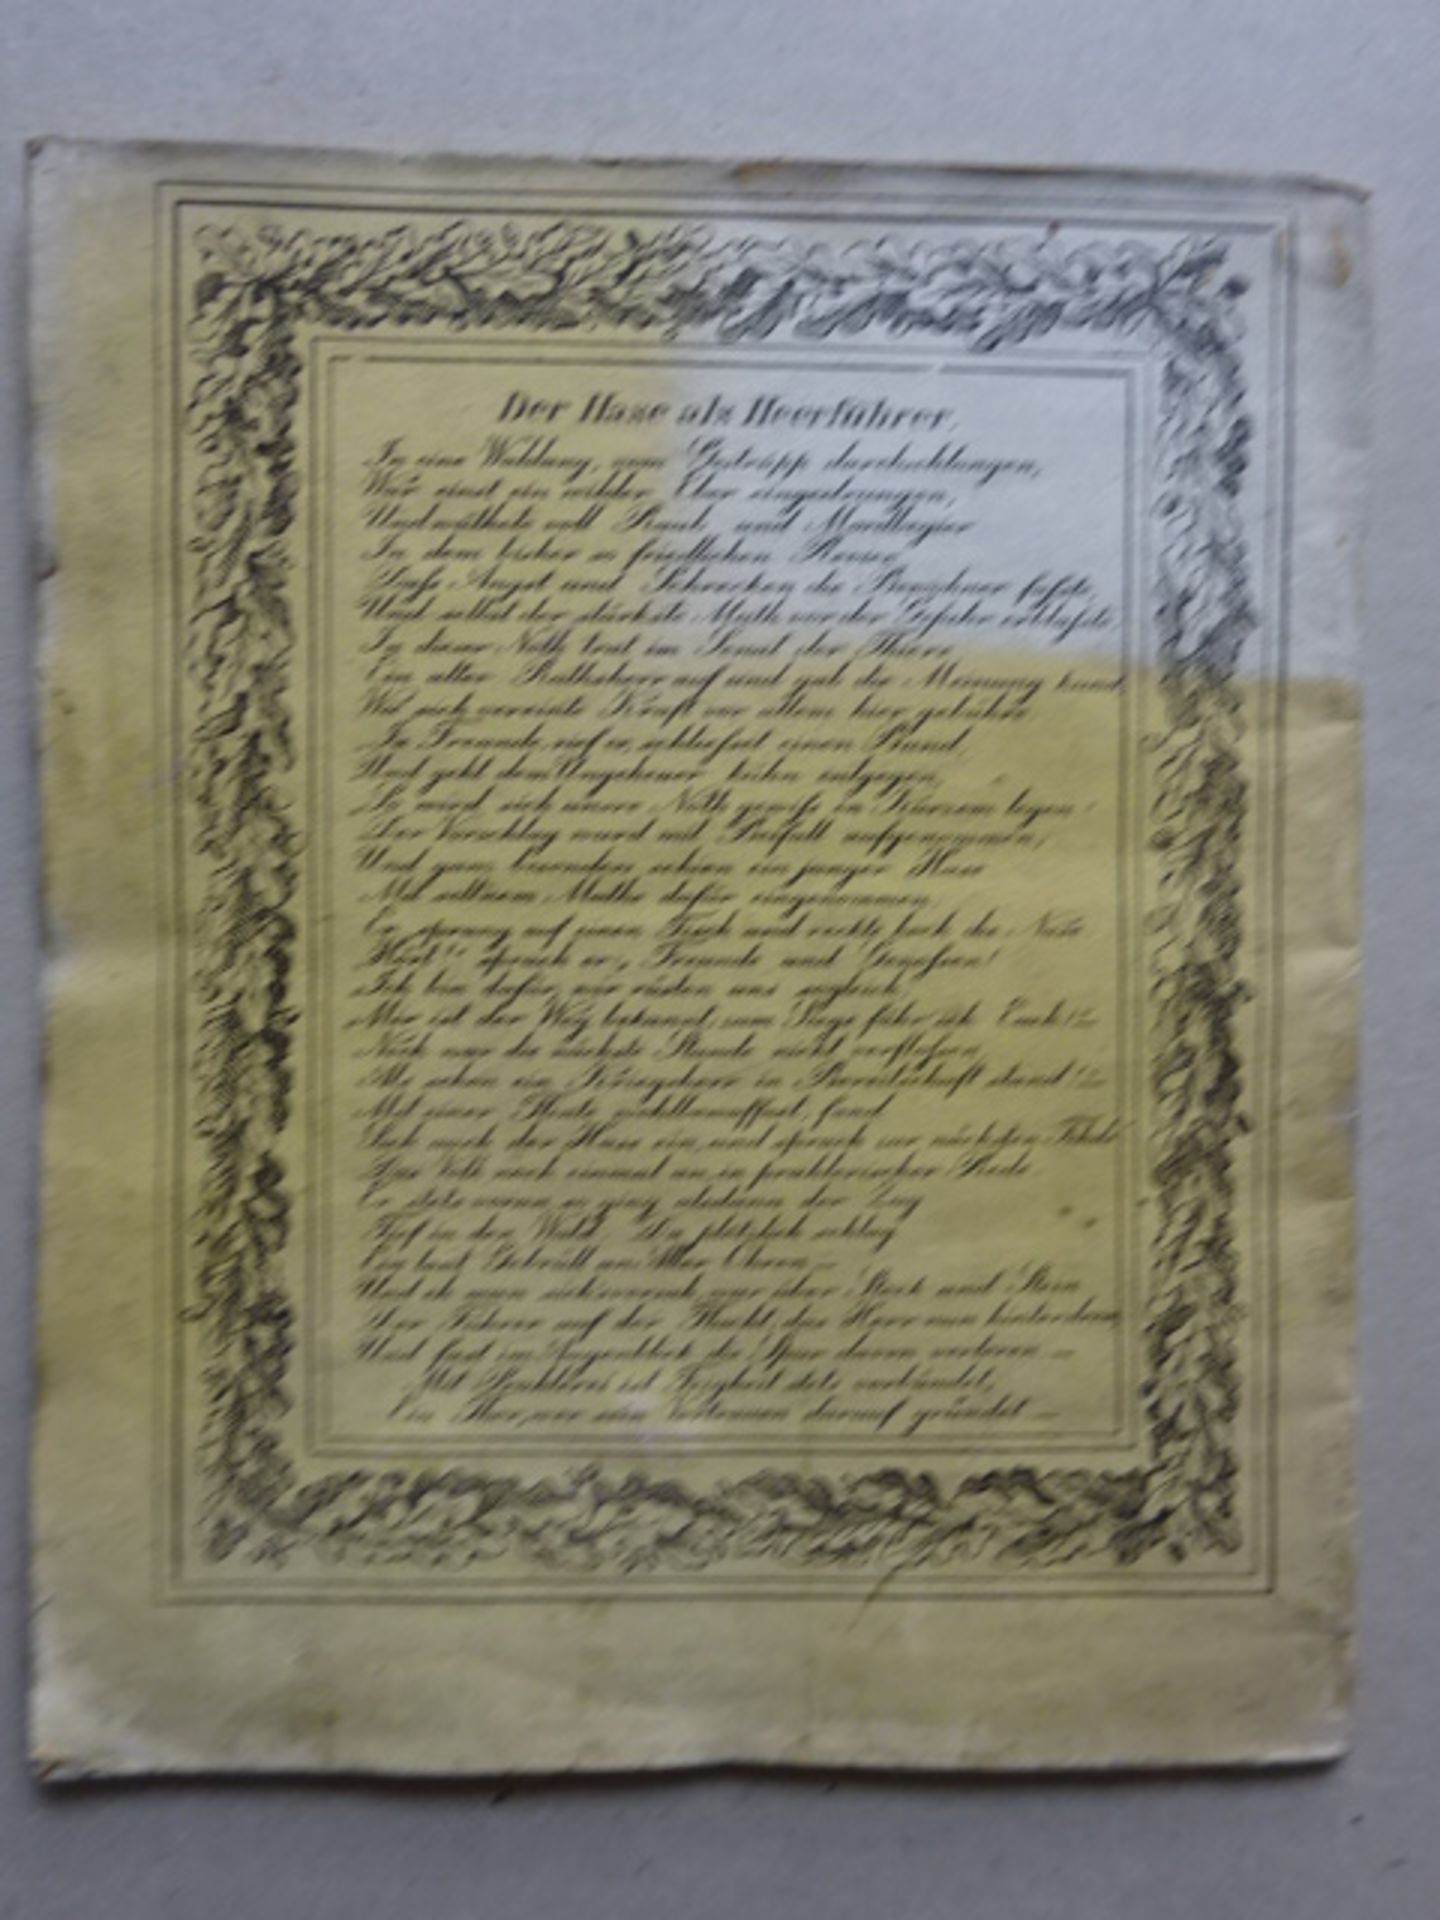 Der Hase als Heerführer.
In eine Waldung, vom Gestrüpp durchschlungen,
War einst ein wilder Eber eingedrungen,
Und wüthete voll Raub und Mordbegier
In dem bisher so friedlichen Revier,
Dass Angst und Schrecken die Bewohner fasste,
Und selbst der stärkste Muth vor der Gefahr erblasste
In dieser Noth trat im Senat der Thiere
Ein alter Rathsherr auf und gab die Meinung kund,
Weil sich vereinte Kraft vor allem hier gebühre
Ja Freunde, rief er, schliesset einen Bund,
Und geht dem Ungeheuer kühn entgegen,
So wird sich unsre Noth gewiss in Kürzem legen!
Der Vorschlag ward mit Beifall aufgenommen,
Und ganz besonders schien ein junger Hase
Mit seltnem Muthe dafür eingenommen,
Er sprang auf einen Tisch und reckte hoch die Nase
Hört!" sprach er, Freunde und Genossen!
Ich bin dafür, wir rüsten uns sogleich,
Mir ist der Weg bekannt, zum Siege führ ich Euch!"
Noch war die nächste Stunde nicht verflossen,
Als schon ein Kriegsheer in Bereitschaft stand!
Mit einer Flinte wohlbewaffnet, fand
Sich auch der Hase ein, und sprach zur nächsten Fehde
Das Volk noch einmal an, in prahlerischer Rede
Er stets voran, so ging alsdann der Zug
Tief in den Wald. Da plötzlich schlug
Ein laut Gebrüll an Aller Ohren
Und eh man sich's versah, war über Stock und Stein
Der Führer auf der Flucht, das Heer nun hinterdrein,
Und fast im Augenblick die Spur davon verloren
Mit Prahlerei ist Feigheit stets verbündet,
Ein Thor, wer sein Vertrauen darauf gründet